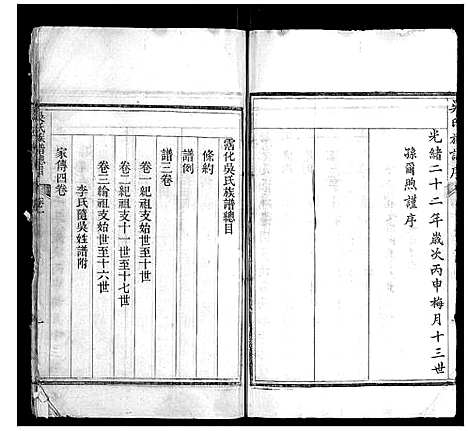 吳氏族譜序
光緒二十二年歲次丙申梅月十三世
孫爾煦謹序
霑化吳氏族譜總目
條約
譜例
譜三卷
卷一紀祖支始世至十世
卷二紀祖支十一世至十七世
卷三綸祖支始世至十六世
李氏隨吳姓譜附
家傳四卷
吳氏族譜總目
卷一
一